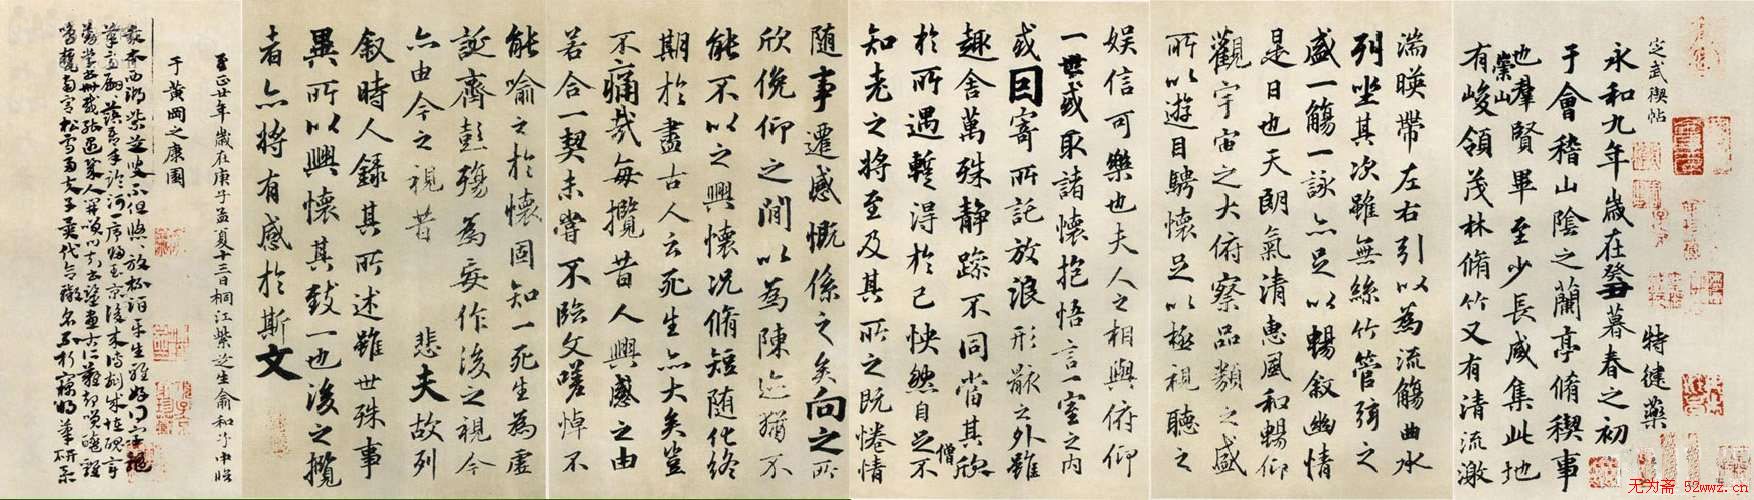 定武禊帖
特健藥
永和九年歲在癸丑暮春之初
于會稽山陰之蘭亭脩稧事
也羣賢畢至少長咸集此地
崇山
有峻領茂林脩竹又有清流激
湍暎帶左右引以為流觴曲水
列坐其次雖無絲竹管弦之
盛一觴一詠亦足以暢敘幽情
是日也天朗氣清惠風和暢仰
觀宇宙之大俯察品類之盛
所以遊目騁懷足以極視聽之
娛信可樂也夫人之相與俯仰
一世或取諸懷抱悟言一室之內
或因寄所託放浪形骸之外雖
趣舍萬殊静躁不同當其欣
於所遇蹔得於己怏然自足不
僧
知老之將至及其所之既惓情
隨事遷感慨係之矣向之所
欣俛仰之閒以為陳迹猶不
能不以之興懷況脩短随化終
期於盡古人云死生亦大矣豈
不痛哉每攬昔人興感之由
若合一契未嘗不臨文嗟悼不
能喻之於懷固知一死生為虛
誕齊彭殤為妄作後之視今
亦由今之視昔 悲夫故列
敘時人錄其所述雖世殊事
異所以興懷其致一也後之攬
者亦將有感於斯文
至正廿年歲在庚子孟夏十三日桐江紫芝生俞和子中臨
于黃岡之康園
无为斋 52wwz.cn